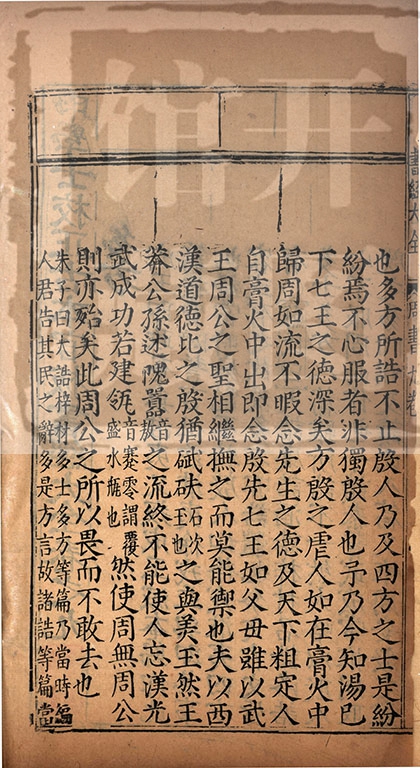 也多方所誥不止殷人乃及四方之士是紛
紛焉不心服者非獨殷人也予乃今知湯已
下七王之德深矣方殷之虐人如在膏火中
歸周如流不暇念先生之德及天下粗定人
自膏火中出即念殷先七王如父母雖以武
王周公之聖相繼撫之而莫能禦也夫以西
漢道德比之殷猶碔砆石次玉也之與美玉然王
莽公孫述隗囂音敖之流終不能使人忘漢光
武成功若建瓴音蹇零謂覆盛水瓶也然使周無周公
則亦殆矣此周公之所以畏而不敢去也
朱子曰大誥梓材多士多方等篇乃當時編
人君告其民之辭多是方言故諸誥等篇當
书经大全
周書九卷
开
馆